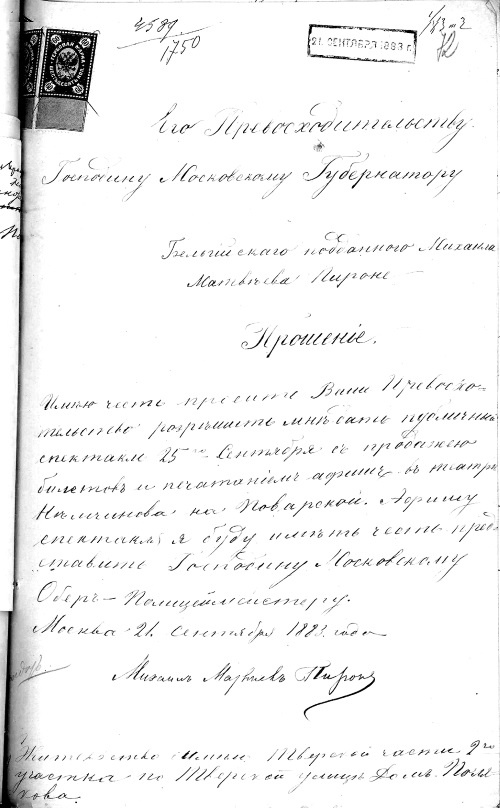 4589
1750
21 СЕНТЯБРЯ 1883 г.
72
Его Превосходительству
Господину Московскому Губернатору
Бельгійскаго подданнаго Михаила
Матвѣева Пироне
Прошеніе.
Имѣю честь просить Ваше Превосхо-
дительство разрѣшить мнѣ дать публичный
спектакль 25го Сентября съ продажею
билетовъ и печатаніемъ афишъ въ театрѣ
Немчинова на Поварской. Афишу
спектакля я буду имѣть честь пред-
ставить Господину Московскому
Оберъ-Полицеймейстеру.
Москва 21 Сентября 1883 года
Михаилъ Матвѣевъ Пироне
Жительство имѣю Тверской части 2го
участка по Тверской улицѣ домъ Поля-
кова.